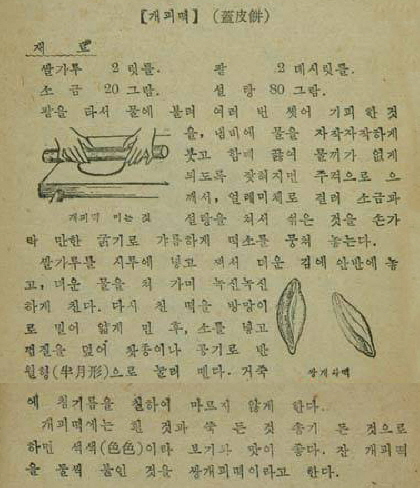 【개피떡】 (蓋皮餠)
재 료
쌀가루 2 릿틀. 팥 2 데시릿틀.
소 금 20 그람. 설 탕 80 그람.
팥을 타서 물에 불려 여러 번 씻어 거피한 것
을, 냄비에 물을 자작자작하게
붓고 함께 끓여 물끼가 없게
되도록 잦혀지면 주걱으로 으
깨서, 얼레미체로 걸러 소금과
개피떡 미는 것
설탕을 쳐서 섞은 것을 손가
락 만한 굵기로 갸름하게 떡소를 뭉쳐 놓는다.
쌀가루를 시루에 넣고 쪄서 더운 김에 안반에 놓
고, 더운 물을 쳐 가며 녹신녹신
하게 친다. 다시 친 떡을 방망이
로 밀어 얇게 민 후, 소를 넣고
껍질을 덮어 찻종이나 공기로 반
월형(半月形)으로 눌러 뗀다. 거죽
쌍개피떡
에 참기름을 칠하여 마르지 않게 한다.
개피떡에는 흰 것과 쑥 든 것 송기 든 것으로
하면 색색(色色)이라 보기와 맛이 좋다. 잔 개피떡
을 둘씩 붙인 것을 쌍개피떡이라고 한다.